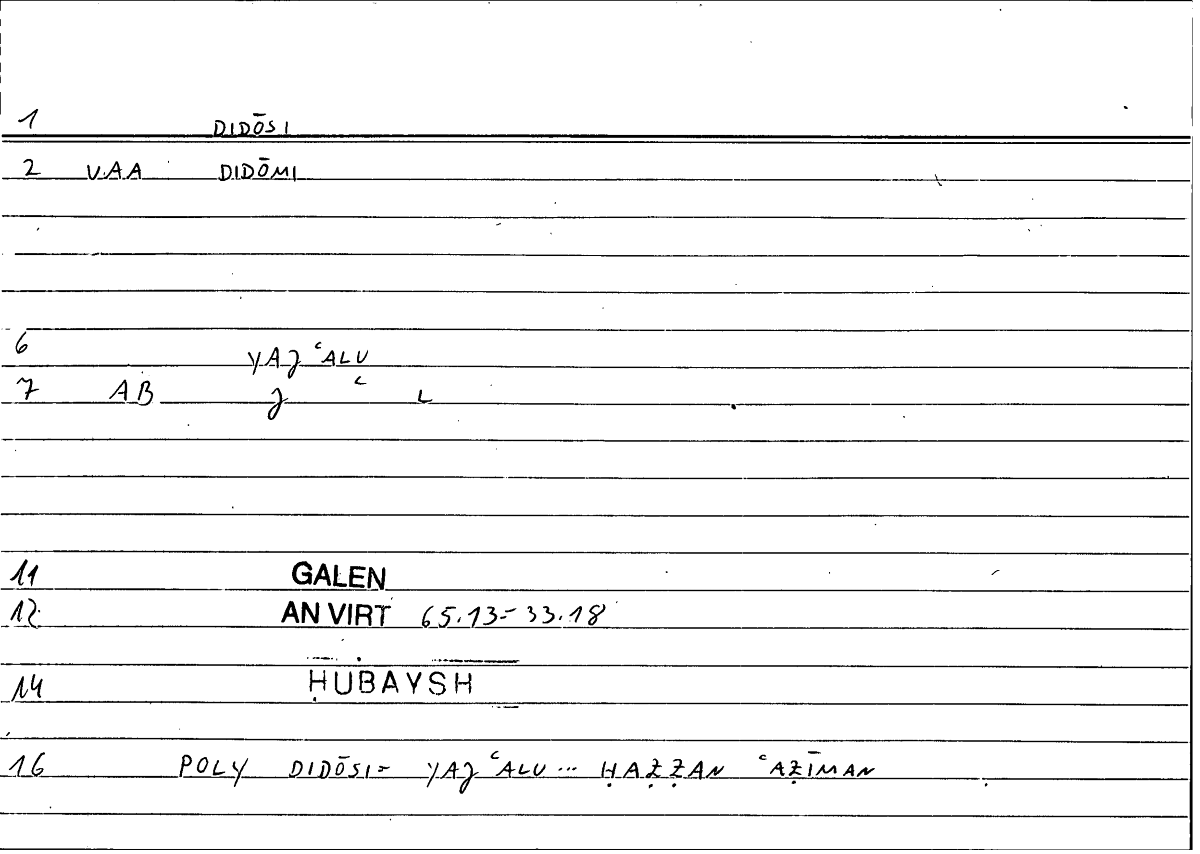 1 DIDŌSI
2 VAA DIDŌMI
6 YAJ ʿALU
7 AB J ʿ L
11 GALEN
12 AN VIRT 65.13=33.18
14 ḤUBAYSH
16 POLY DIDŌSI= YAJ ʿALU ... ḤAẒẒAN ʿAẒĪMAN